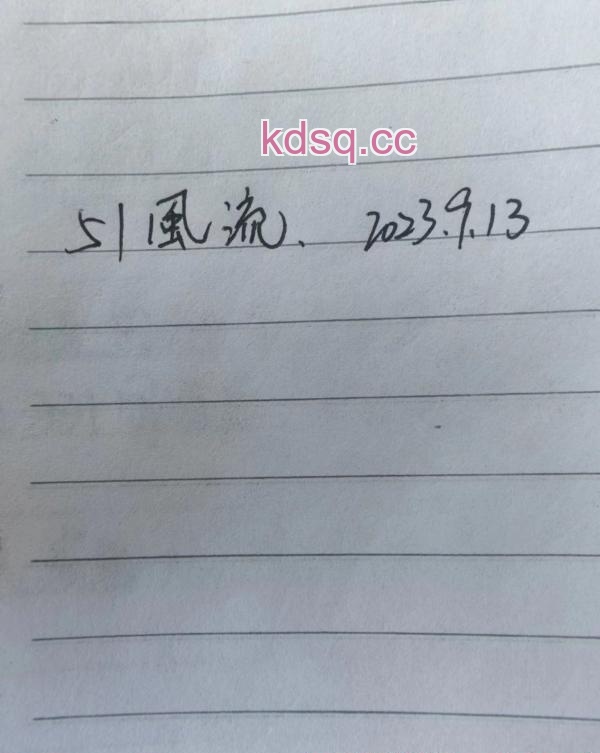 kdsq.cc
51風流. 2023.9.13